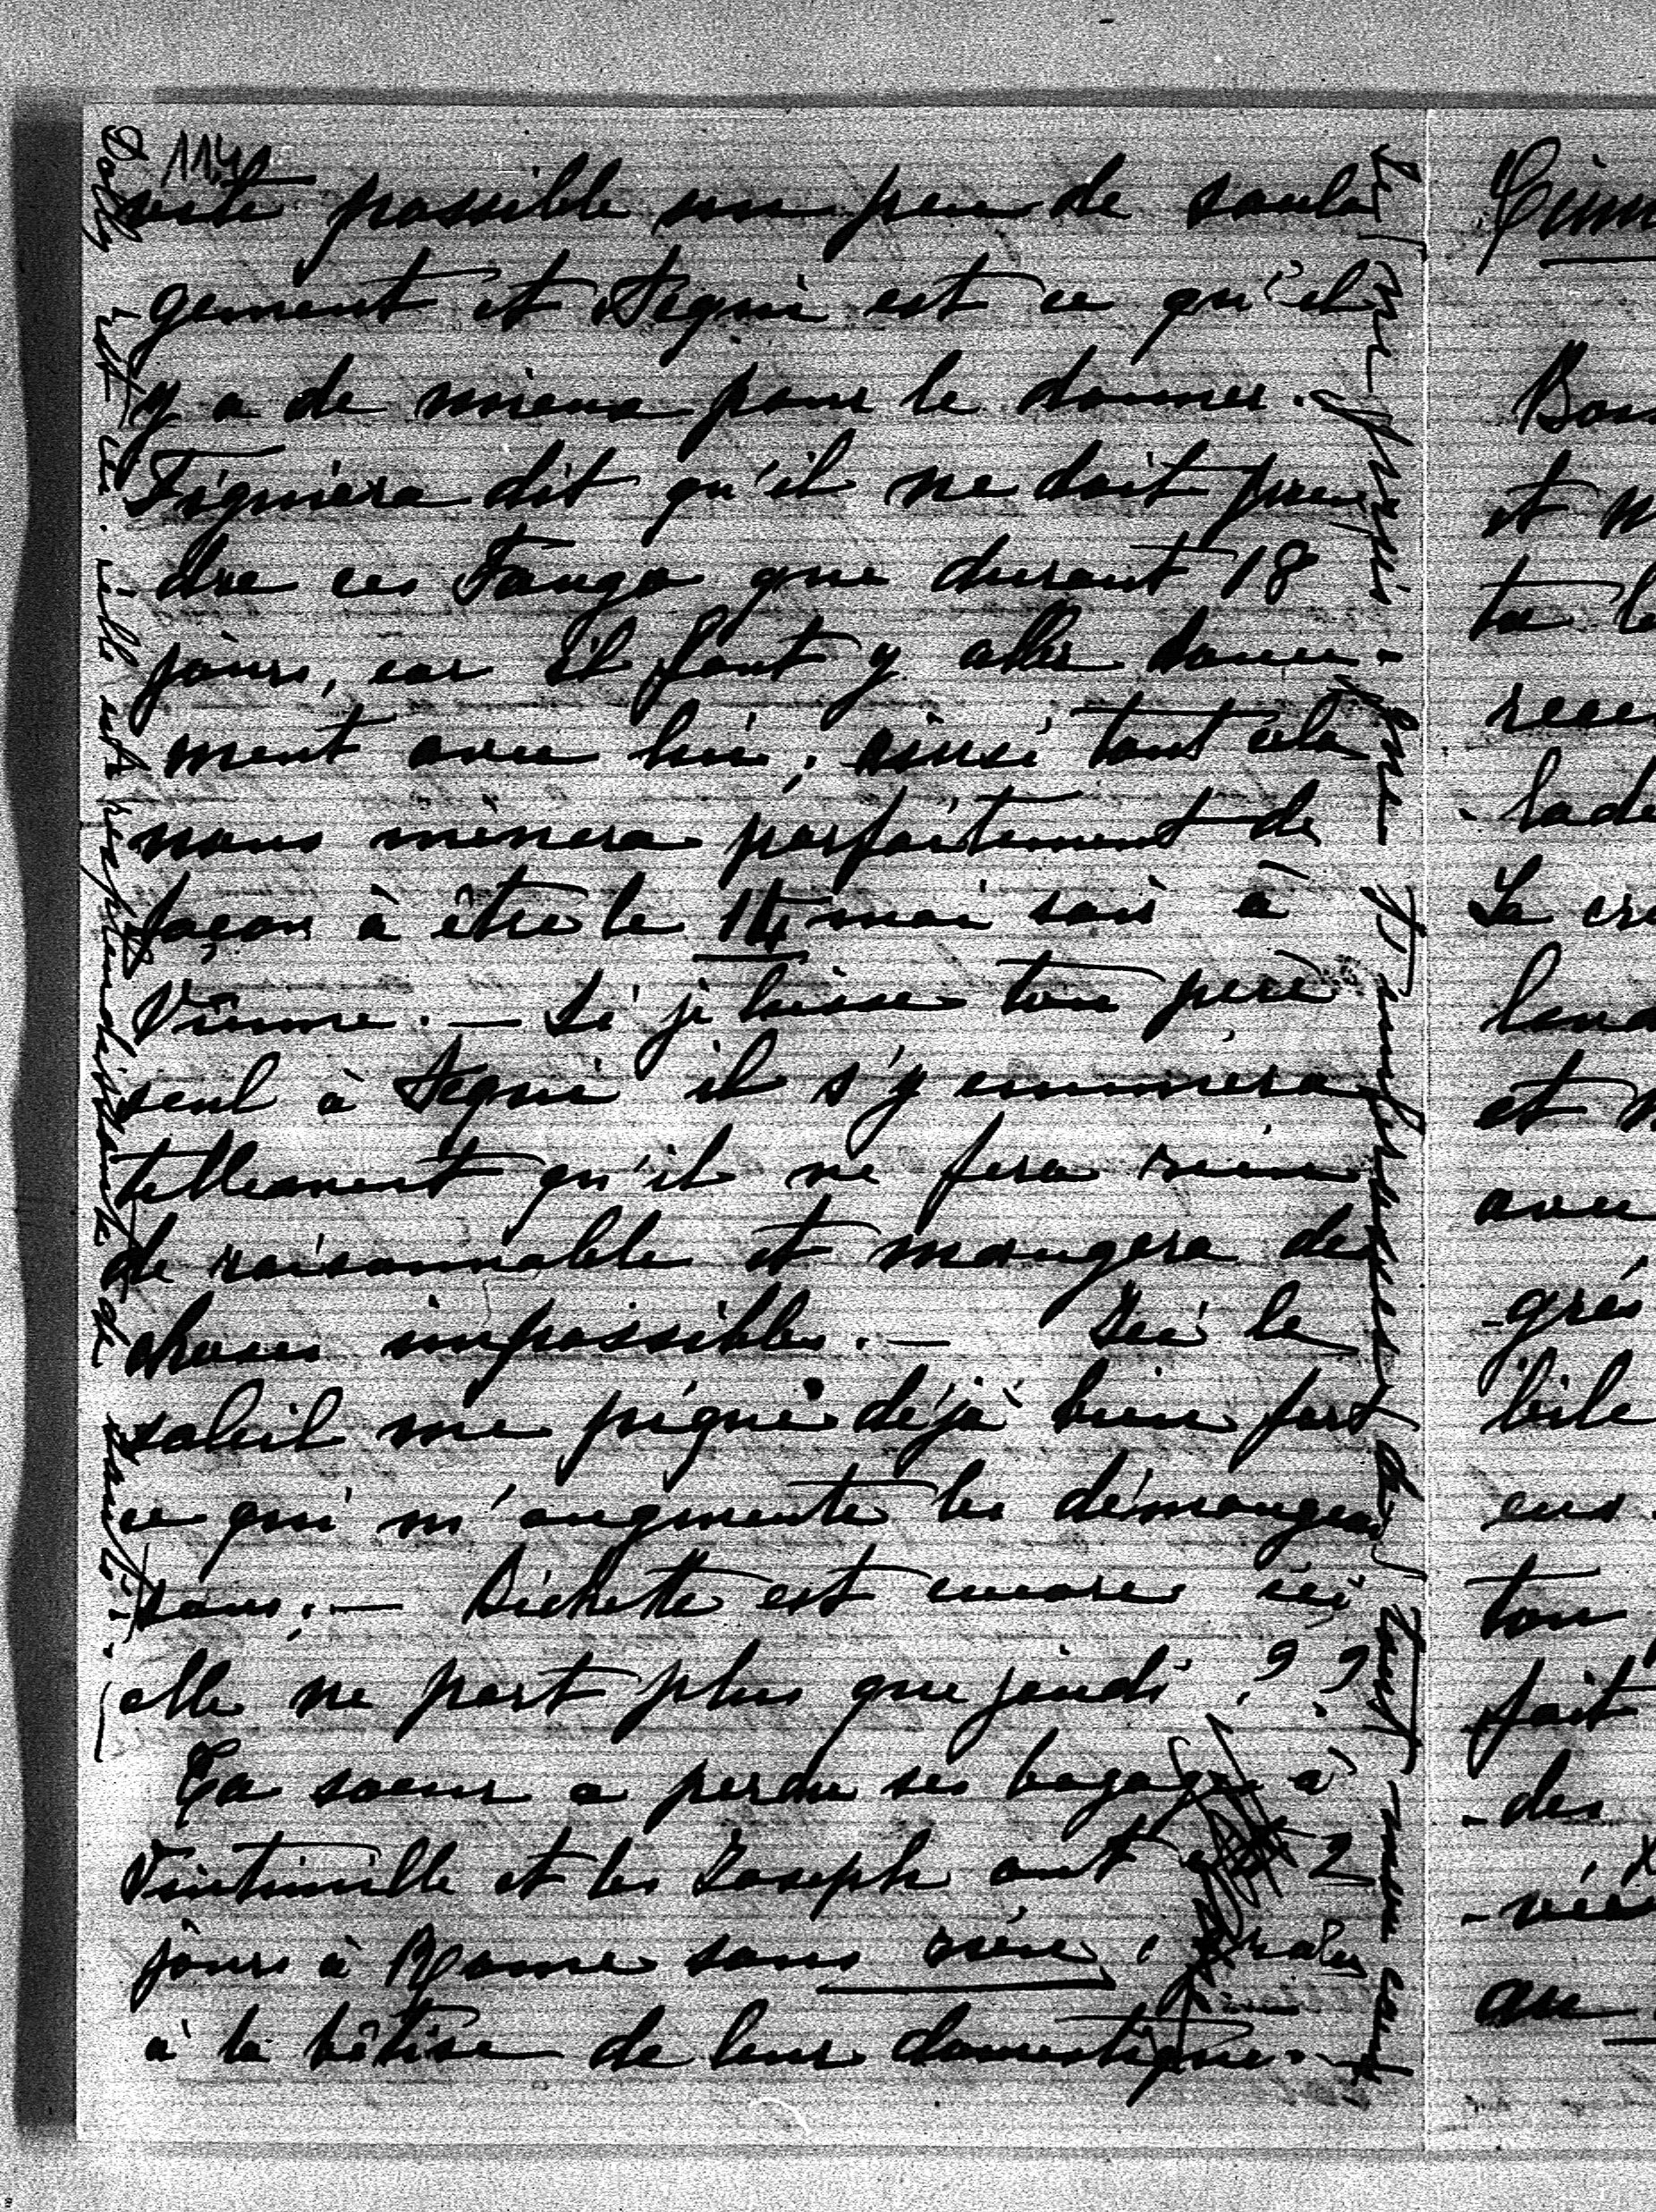 114
vite possible un peu de soula
gement et Acqui est ce qu'il
y a de mieux pour le donner.
Figuiera dit qu'il ne doit pren
dre ces Fango que durant 18
jours, car il faut y aller douce-
ment avec lui; ainsi tout cela
nous mènera parfaitement de
façon à être le 14 mai soir à
Vienne. — Si je laisse ton père
seul à Acqui il s'y ennuiera
tellement qu'il ne fera rien
de raisonnable et mangera des
choses impossibles. — Ici le
soleil me pique déjà bien fort
ce qui m'augmente les démangeai
sons. — Richette est encore ici
elle ne part plus que jeudi ??
Ta soeur a perdu ses bagages à
Vintimille et les Joseph ont été 2
jours à Rome sans rien, grâce
à la bêtise de leur domestique.
Dolly est ici
Cimi
Bon
et m
ta le
rece
lade
La cro
et n
avec
-grés
bile
ton
fait
-des
au